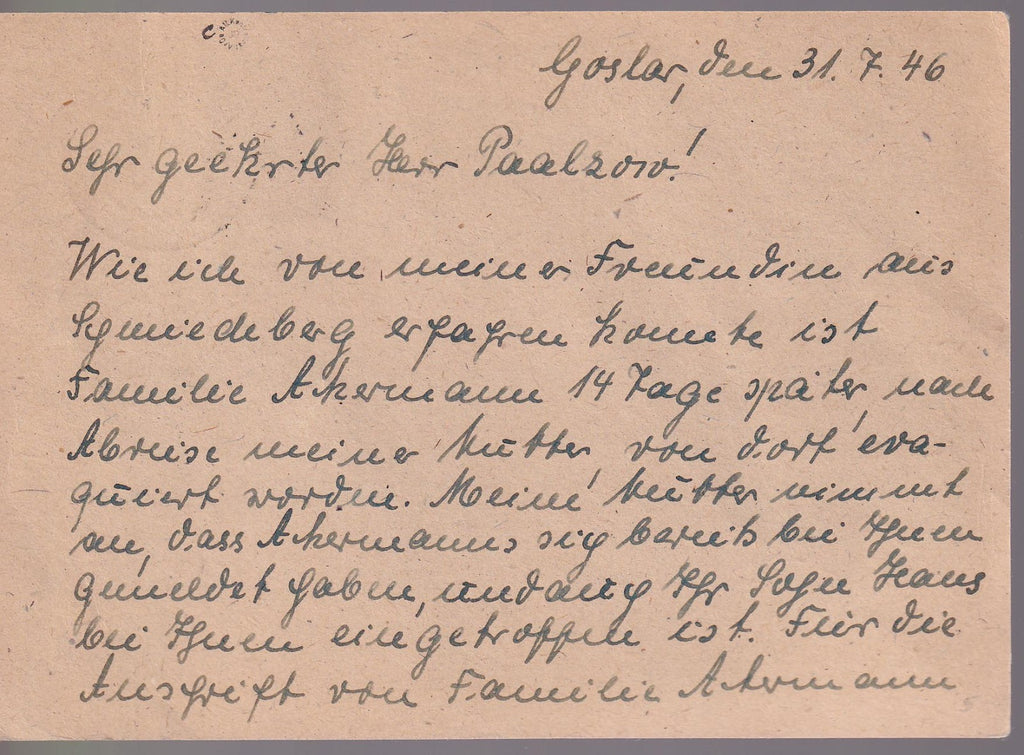 Goslar, den 31. 7. 46
Sehr geehrter Herr Paalzow!
Wie ich von meiner Freundin aus
Schmiedeberg erfahren konnte ist
Familie Akermann 14 Tage später, nach
Abreise meiner Mutter, von dort eva-
quiert worden. Meine Mutter nimmt
an, dass Akermanns sich bereits bei Ihnen
gemeldet haben, und auch Ihr Sohn Hans
bei Ihnen eingetroffen ist. Für die
Anschrift von Familie Akermann